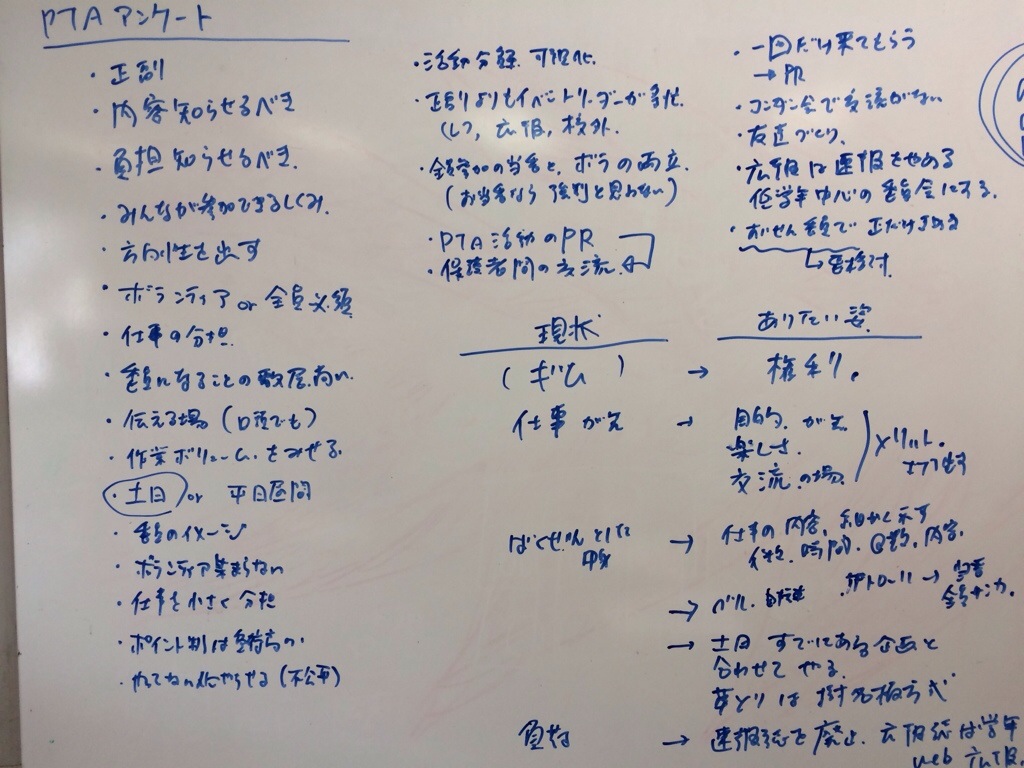 PTAアンケート
・正副
・内容知らせるべき
・負担知らせるべき.
・みんなが参加できるしくみ.
・方向性を出す
・ボランティア or 全員必須
・仕事の分担.
・委員になることの敷居高い.
・伝える場(口頭でも)
・作業ボリュームをみせる.
・土日 or 平日昼間
・委員のイメージ
・ボランティア集まらない
・仕事を小さく分担
・ポイント制は
・活動分類 可視化.
・正副よりもイベントリーダーが
広報, 校外.
・全員参加の当番と, ボラの両立
(お当番なら強制と思わない)
・PTA活動のPR
・保護者間の交流.
・一回だけ来てもらう
→ PR
・コンダン会で交流がない
・友達づくり.
・広報は速報をやめる
低学年中心の委員会にする.
・
→ 要検討.
現状
ありたい姿
(ギム) → 権利.
仕事が先 → 目的が先
楽しさ.
交流の場.
メリット.
ばくぜんとした
→ 仕事の内容, 細かく示す
時間. 回数. 内容.
→ ベル.
パトロール →
→ 土日 すでにある企画と
合わせてやる.
草とりは
負担 → 速報紙を廃止. 広報紙は学年
web 広報.